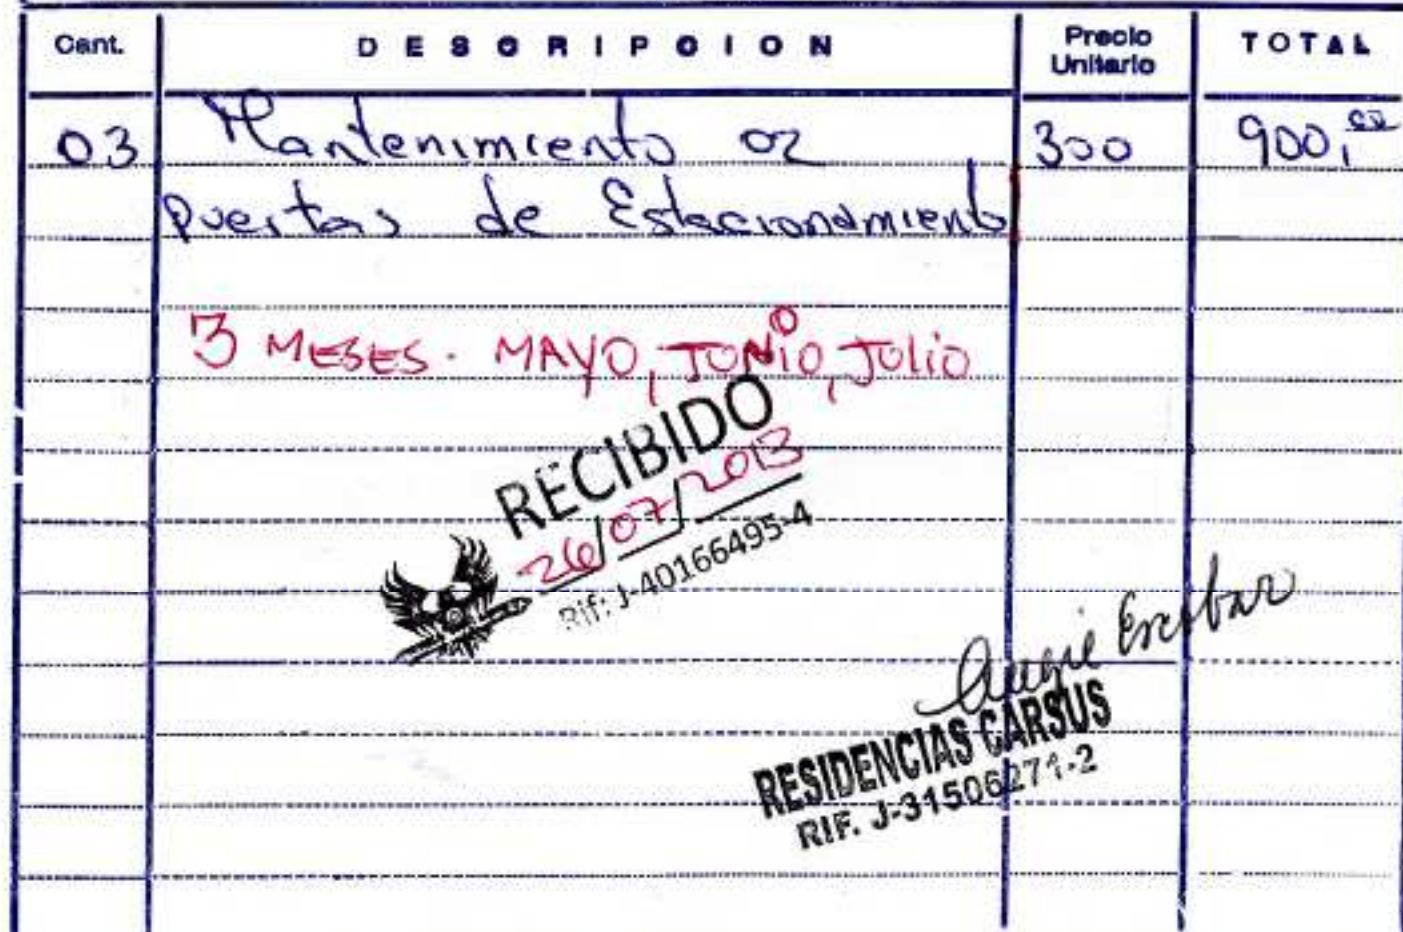 Cant. DESCRIPCION Precio Unitario TOTAL
03 Mantenimiento 02 300 900,00
puertas de Estacionamiento
3 MESES. MAYO, JUNIO, JULIO
RECIBIDO
26/07/2013
Rif: J-40166495-4
Escobar
RESIDENCIAS CARSUS
RIF. J-31506271-2